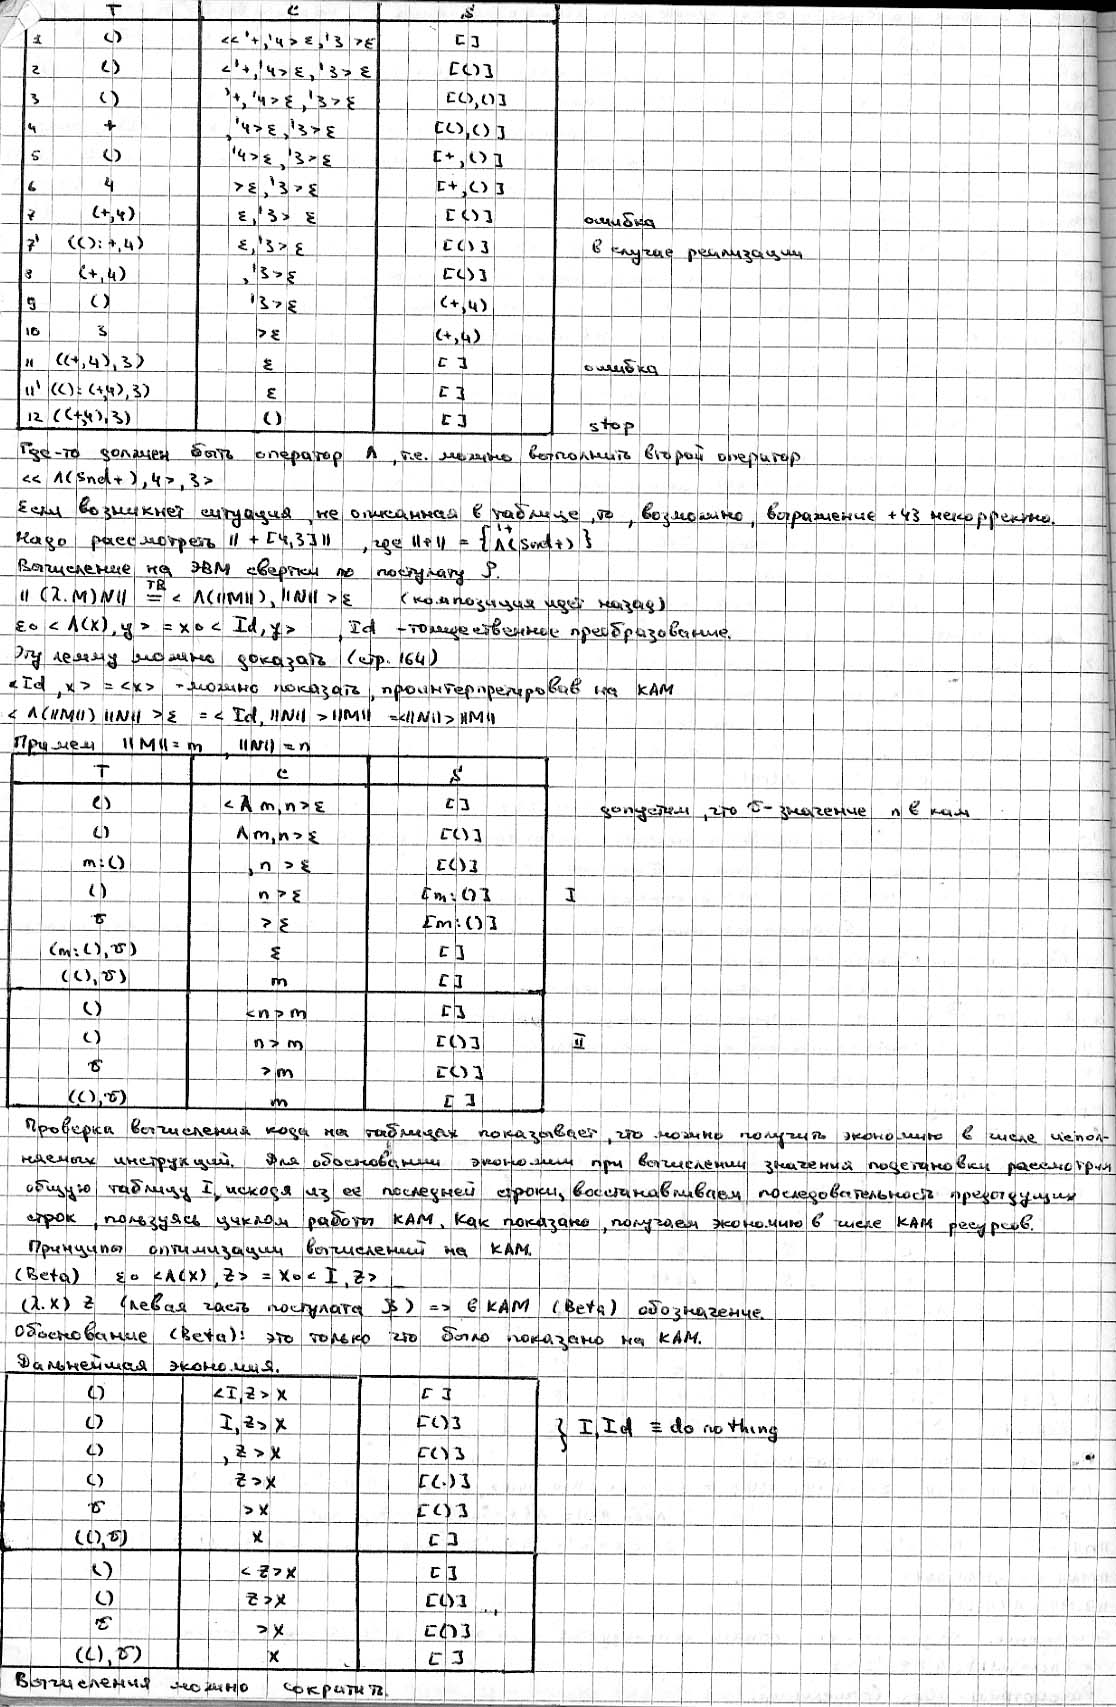 T C S
1 () <<'+,'4>ε,'3>ε []
2 () <'+,'4>ε,'3>ε [()]
3 () '+,'4>ε,'3>ε [(),()]
4 + ,'4>ε,'3>ε [(),()]
5 () '4>ε,'3>ε [+,()]
6 4 >ε,'3>ε [+,()]
7 (+,4) ε,'3>ε [()] ошибка
7' (():+,4) ε,'3>ε [()] в случае реализации
8 (+,4) ,'3>ε [()]
9 () '3>ε (+,4)
10 3 >ε (+,4)
11 ((+,4),3) ε [] ошибка
11' (():(+,4),3) ε []
12 ((+,4),3) () [] stop
Где-то должен быть оператор Λ, т.е. можно выполнить второй оператор
<<Λ(Snd+),4>,3>
Если возникнет ситуация, не описанная в таблице, то, возможно, выражение +43 некорректно.
Надо рассмотреть ||+[4,3]||, где ||+|| = {'+ Λ(Snd+)}
Вычисление на ЭВМ свертки по постулату β.
||(λ.M)N|| TR = <Λ(||M||),||N||>ε (композиция идет назад)
ε∘<Λ(x),y> = x∘<Id,y>, Id - тождественное преобразование.
Эту лемму можно доказать (стр. 164)
<Id,x> = <x> - можно показать, проинтерпретировав на КАМ
<Λ(||M||)||N||>ε = <Id,||N||>||M|| = <||N||>||M||
Примем ||M||=m, ||N||=n
T C S
() <Λm,n>ε [] допустим, что σ-значение n в кам
() Λm,n>ε [()]
m:() ,n>ε [()]
() n>ε [m:()] I
σ >ε [m:()]
(m:(),σ) ε []
((),σ) m []
() <n>m []
() n>m [()] II
σ >m [()]
((),σ) m []
Проверка вычисления кода на таблицах показывает, что можно получить экономию в числе испол-
няемых инструкций. Для обоснования экономии при вычислении значения подстановки рассмотрим
общую таблицу I, исходя из ее последней строки, восстанавливаем последовательность предыдущих
строк, пользуясь циклом работы КАМ. Как показано, получаем экономию в числе КАМ ресурсов.
Принципы оптимизации вычислений на КАМ.
(Beta) ε∘<Λ(x),z> = x∘<I,z>
(λ.x)z (левая часть постулата β) => в КАМ (Beta) обозначение.
Обоснование (Beta): это только что было показано на КАМ.
Дальнейшая экономия.
() <I,z>x []
() I,z>x [()] } I,Id ≡ do nothing
() ,z>x [()]
() z>x [(.)]
σ >x [()]
((),σ) x []
() <z>x []
() z>x [()]
σ >x [()]
((),σ) x []
Вычисления можно сократить.